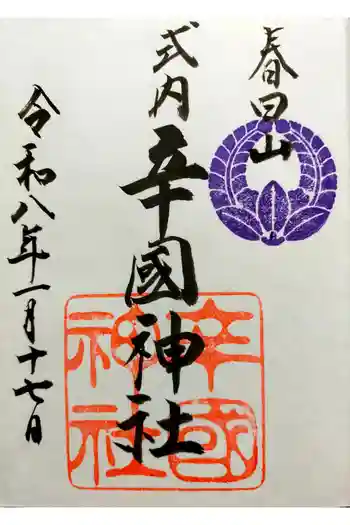 春日山
式内
辛國神社
令和八年一月十七日
辛國
神社